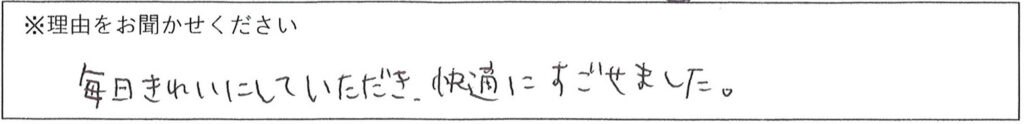 ※理由をお聞かせください
毎日きれいにしていただき、快適にすごせました。